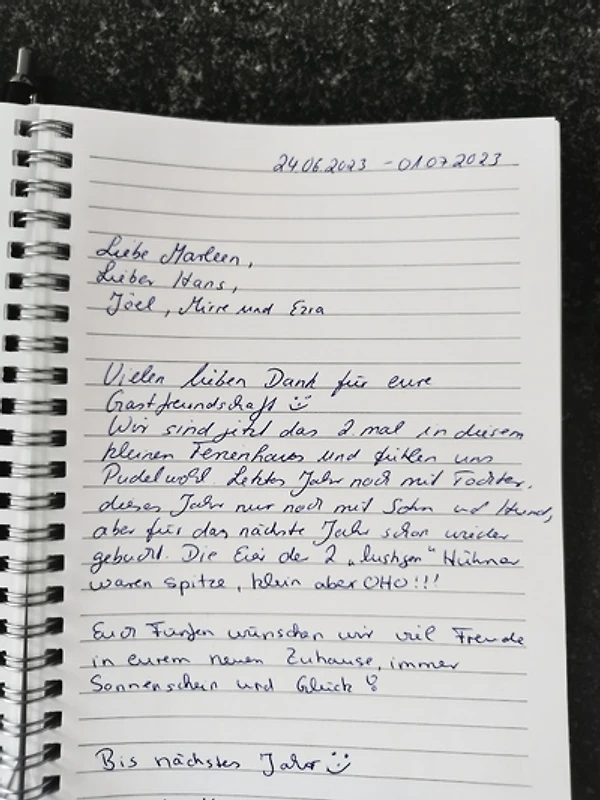 24.06.2023 - 01.07.2023
Liebe Marleen,
Lieber Hans,
Joel, Mirre und Ezra
Vielen lieben Dank für eure
Gastfreundschaft :)
Wir sind jetzt das 2 mal in diesem
kleinen Ferienhaus und fühlen uns
Pudelwohl. Letztes Jahr noch mit Tochter,
dieses Jahr nur noch mit Sohn und Hund,
aber für das nächste Jahr schon wieder
gebucht. Die Eier der 2 „lustigen" Hühner
waren spitze, klein aber OHO!!!
Euch Fünfen wünschen wir viel Freude
in eurem neuen Zuhause, immer
Sonnenschein und Glück
Bis nächstes Jahr :)